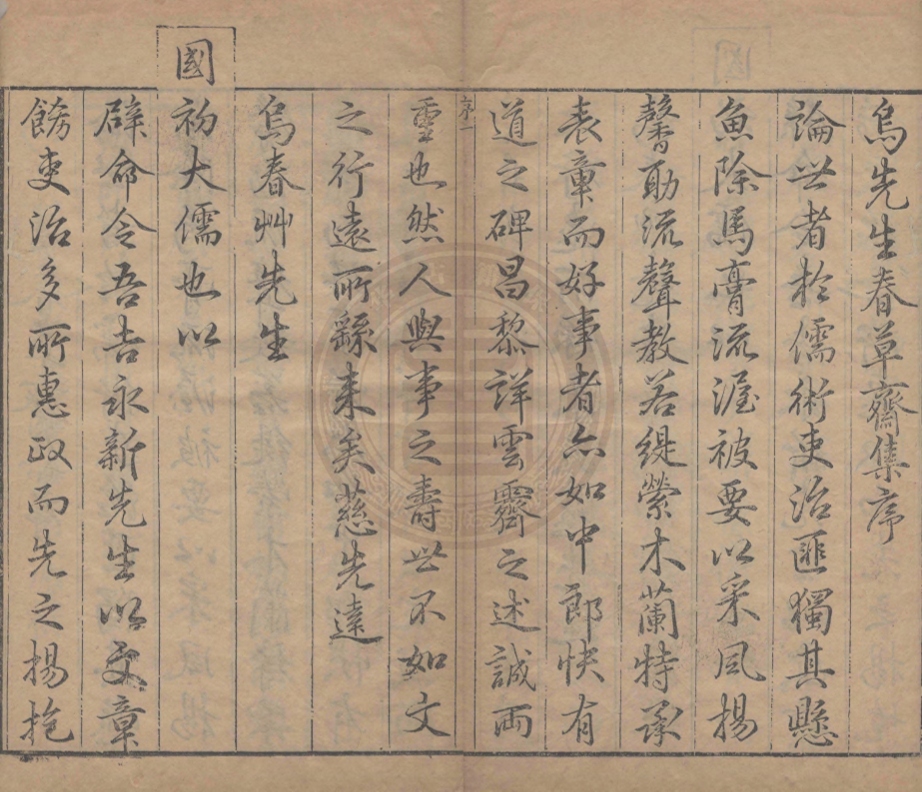 烏先生春草齋集序
論世者於儒術吏治匪獨其懸
魚除馬膏流渥被要以采風揚
馨劭流聲教若緹縈木蘭特篆
表章而好事者亦如中郎快有
道之碑昌黎詳雲霽之述誠两
重也然人與事之壽世不如文
序一
之行遠所繇来矣慈先達
烏春艸先生
國
初大儒也以
辟命令吾吉永新先生以文章
餝吏治多所惠政而先之揚挖